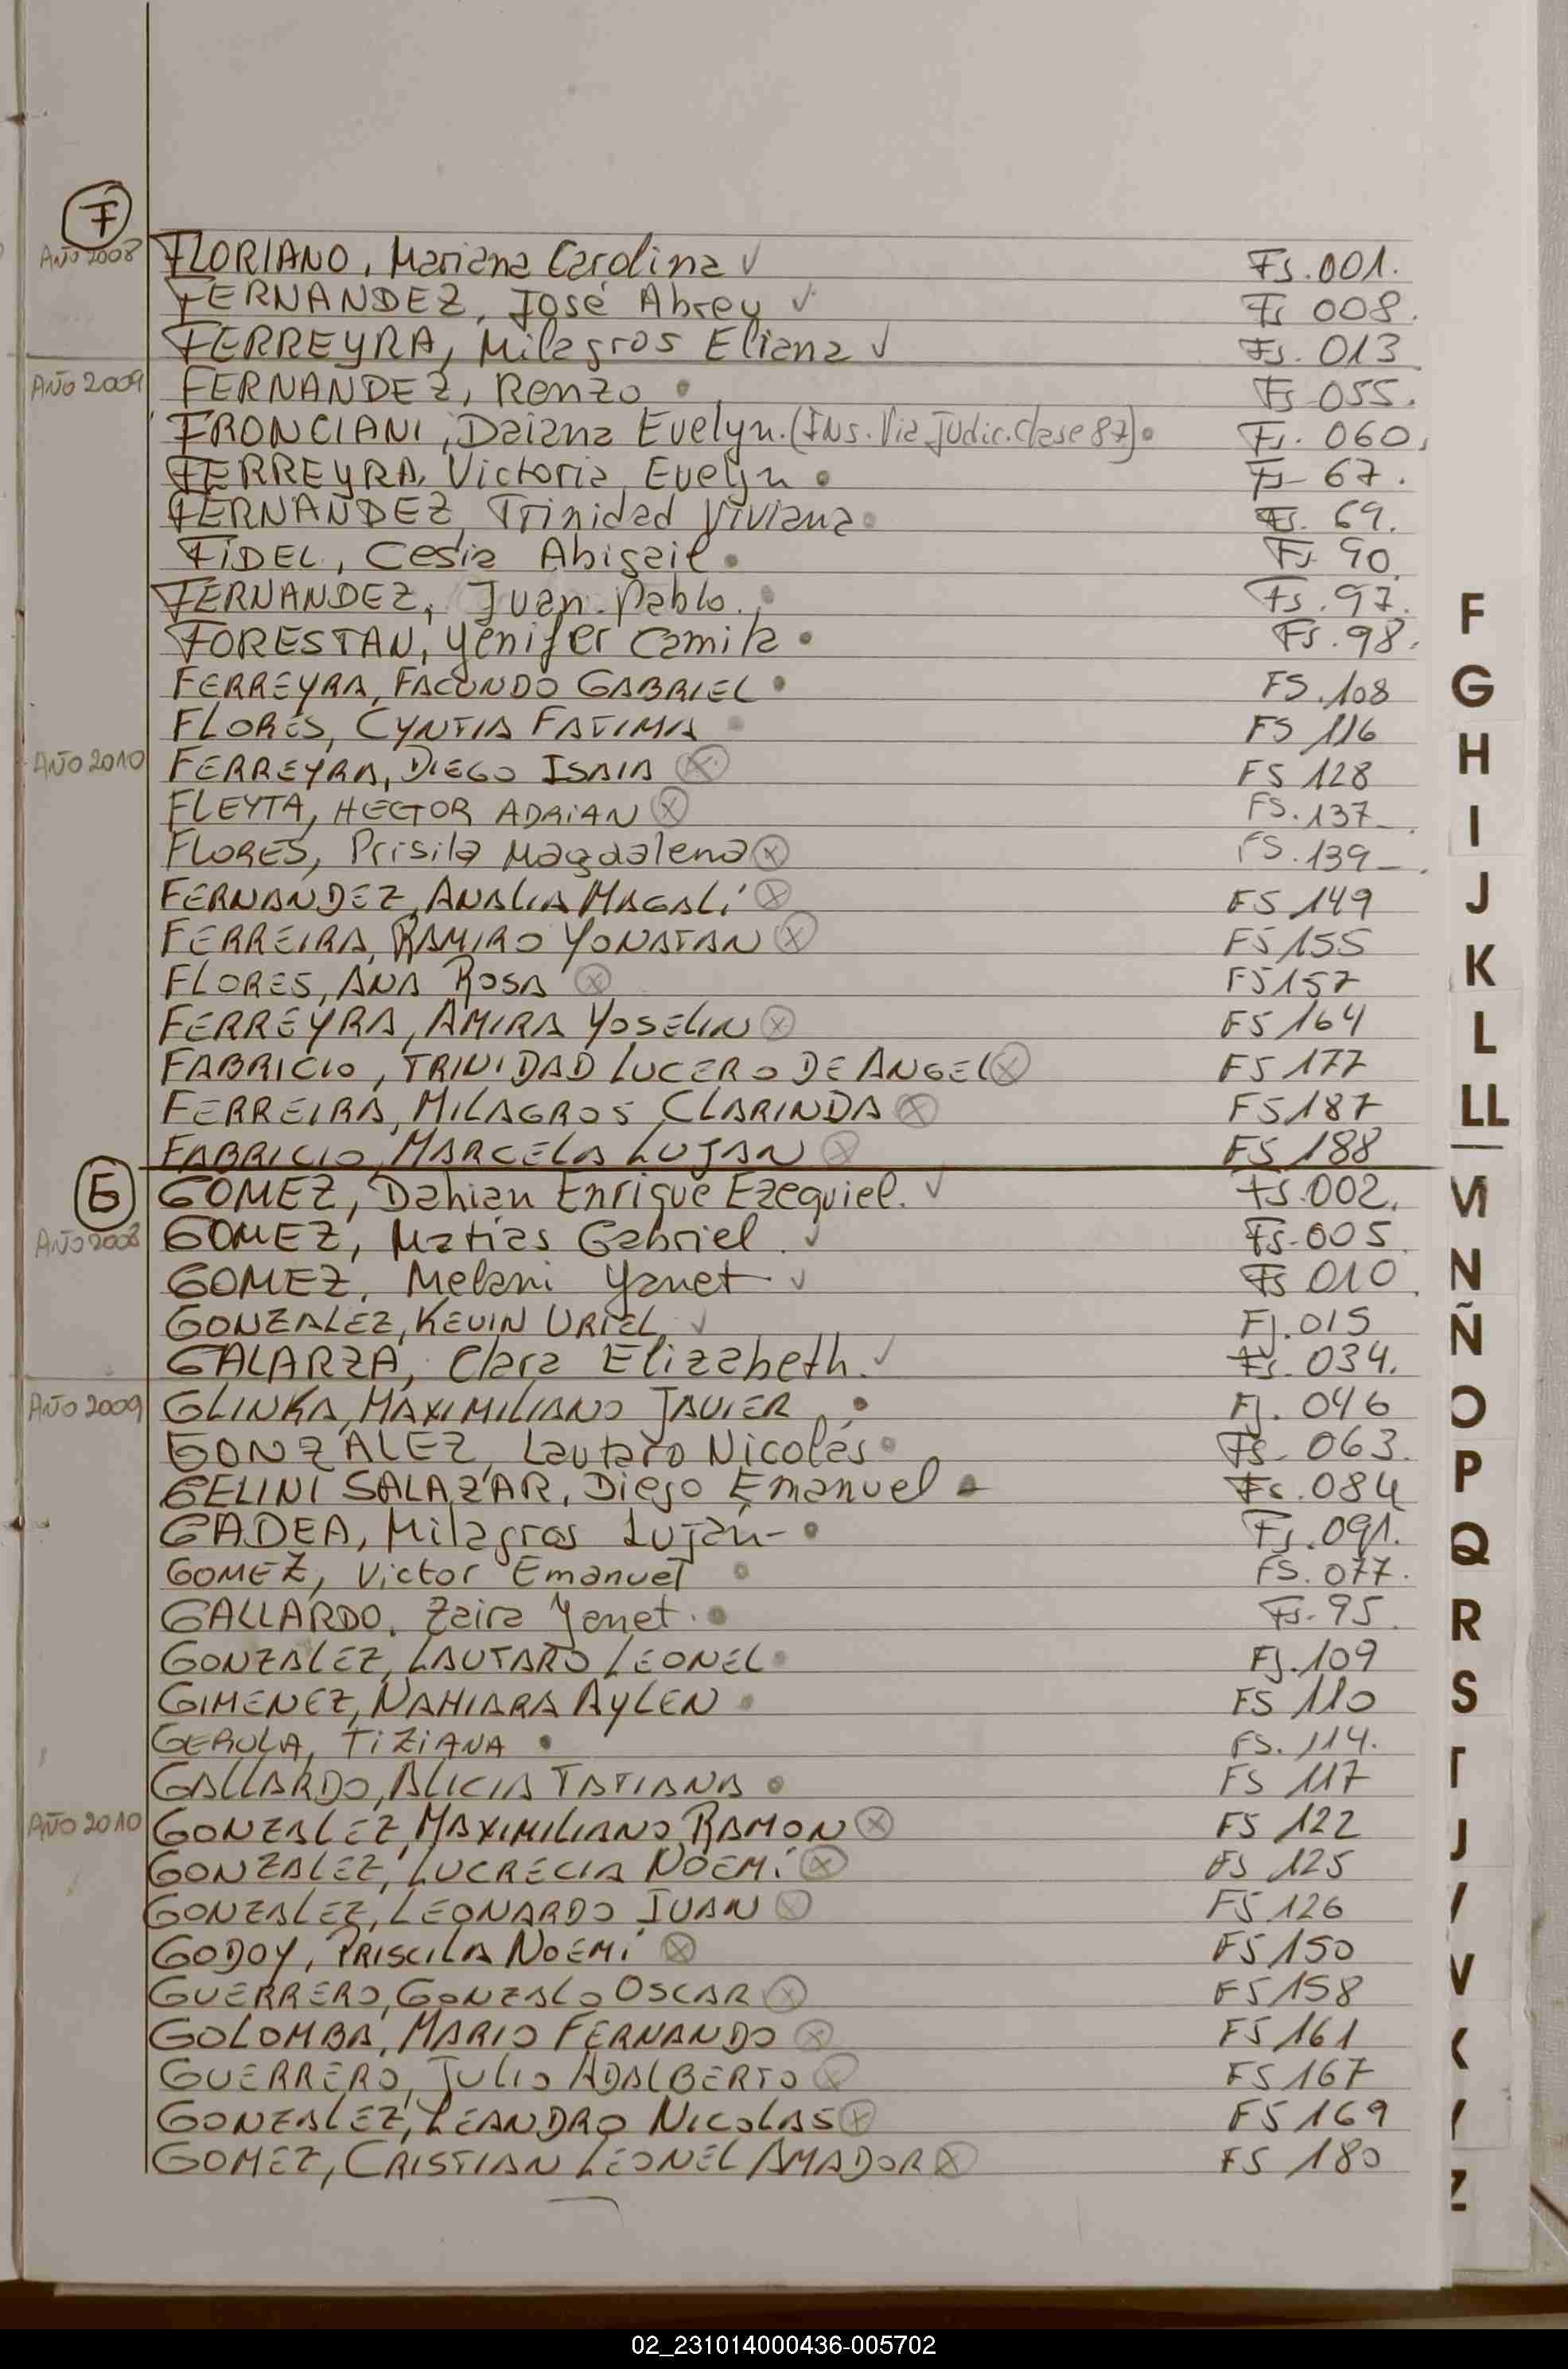 F
AÑO 2008 FLORIANO, Mariana Carolina ✓ Fs. 001.
FERNANDEZ, José Abrey ✓ Fs 008.
FERREYRA, Milagros Eliana ✓ Fs. 013
AÑO 2009 FERNANDEZ, Renzo • Fs 055.
FRONCIANI, Daiana Evelyn. (Ins. Via Judic. Clase 87) • Fs. 060.
FERREYRA, Victoria Evelyn • Fs 67.
FERNANDEZ, Trinidad Viviana • Fs. 69.
FIDEL, Cesia Abigail • Fs 90
FERNANDEZ, Juan Pablo. • Fs. 97.
FORESTAN, Yenifer Camila • Fs. 98.
FERREYRA, FACUNDO GABRIEL • FS. 108
FLORES, CYNTIA FATIMA • FS 116
AÑO 2010 FERREYRA, DIEGO ISAIA ⓧ FS 128
FLEYTA, HECTOR ADRIAN ⓧ FS. 137-
FLORES, Prisila Magdalena ⓧ FS. 139-
FERNANDEZ, ANALIA MAGALÍ ⓧ FS 149
FERREIRA, RAMIRO YONATAN ⓧ FS 155
FLORES, ANA ROSA ⓧ FS 157
FERREYRA, AMIRA YOSELIN ⓧ FS 164
FABRICIO, TRINIDAD LUCERO DE ANGEL ⓧ FS 177
FERREIRA, MILAGROS CLARINDA ⓧ FS 187
FABRICIO, MARCELA LUJAN ⓧ FS 188
G GOMEZ, Dahian Enrique Ezequiel. ✓ Fs. 002.
AÑO 2008 GOMEZ, Matías Gabriel ✓ Fs. 005.
GOMEZ, Melani Yanet ✓ Fs 010.
GONZALEZ, KEVIN URIEL ✓ Fj. 015
GALARZA, Clara Elizabeth. ✓ Fs. 034.
AÑO 2009 GLINKA, MAXIMILIANO JAVIER • Fj. 046
GONZÁLEZ, Lautaro Nicolás • Fs. 063.
GELINI SALAZAR, Diego Emanuel • Fs. 084
GADEA, Milagros Luján- • Fs. 091.
GOMEZ, Victor Emanuel • FS. 077.
GALLARDO, Zaira Yanet. • Fs. 95
GONZALEZ, LAUTARO LEONEL • Fj. 109
GIMENEZ, NAHIARA AYLEN • FS 110
GEROLA, TIZIANA • FS. 114.
GALLARDO, ALICIA TATIANA • FS 117
AÑO 2010 GONZALEZ, MAXIMILIANO RAMON ⓧ FS 122
GONZALEZ, LUCRECIA NOEMÍ ⓧ FS 125
GONZALEZ, LEONARDO IVAN ⓧ FS 126
GODOY, PRISCILA NOEMÍ ⓧ FS 150
GUERRERO, GONZALO OSCAR ⓧ FS 158
GOLOMBA, MARIO FERNANDO ⓧ FS 161
GUERRERO, JULIO ADALBERTO ⓧ FS 167
GONZALEZ, LEANDRO NICOLAS ⓧ FS 169
GOMEZ, CRISTIAN LEONEL AMADOR ⓧ FS 180
F
G
H
I
J
K
L
LL
M
N
Ñ
O
P
Q
R
S
Z
02_231014000436-005702